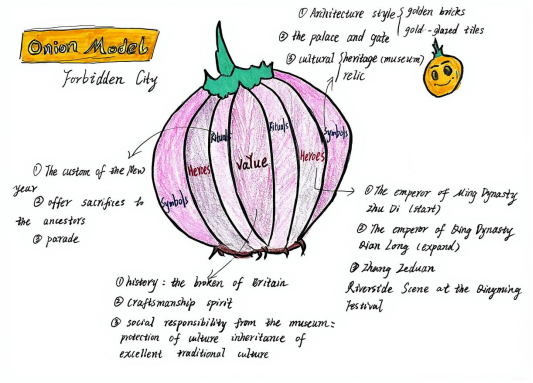 Onion Model
Forbidden City
① Architecture style { golden bricks
gold-glazed tiles
② the palace and gate
③ cultural heritage (museum)
relic
Symbols
Heroes
Rituals
Value
Rituals
Heroes
Symbols
① The custom of the New
year
② offer sacrifices to
the ancestors
③ parade
① The emperor of Ming Dynasty
Zhu Di (start)
② The emperor of Qing Dynasty
Qian Long (expand)
③ Zhang Zeduan
Riverside Scene at the Qingming
Festival
① history: the broken of Britain
② craftsmanship spirit
③ social responsibility from the museum:
protection of culture inheritance of
excellent traditional culture